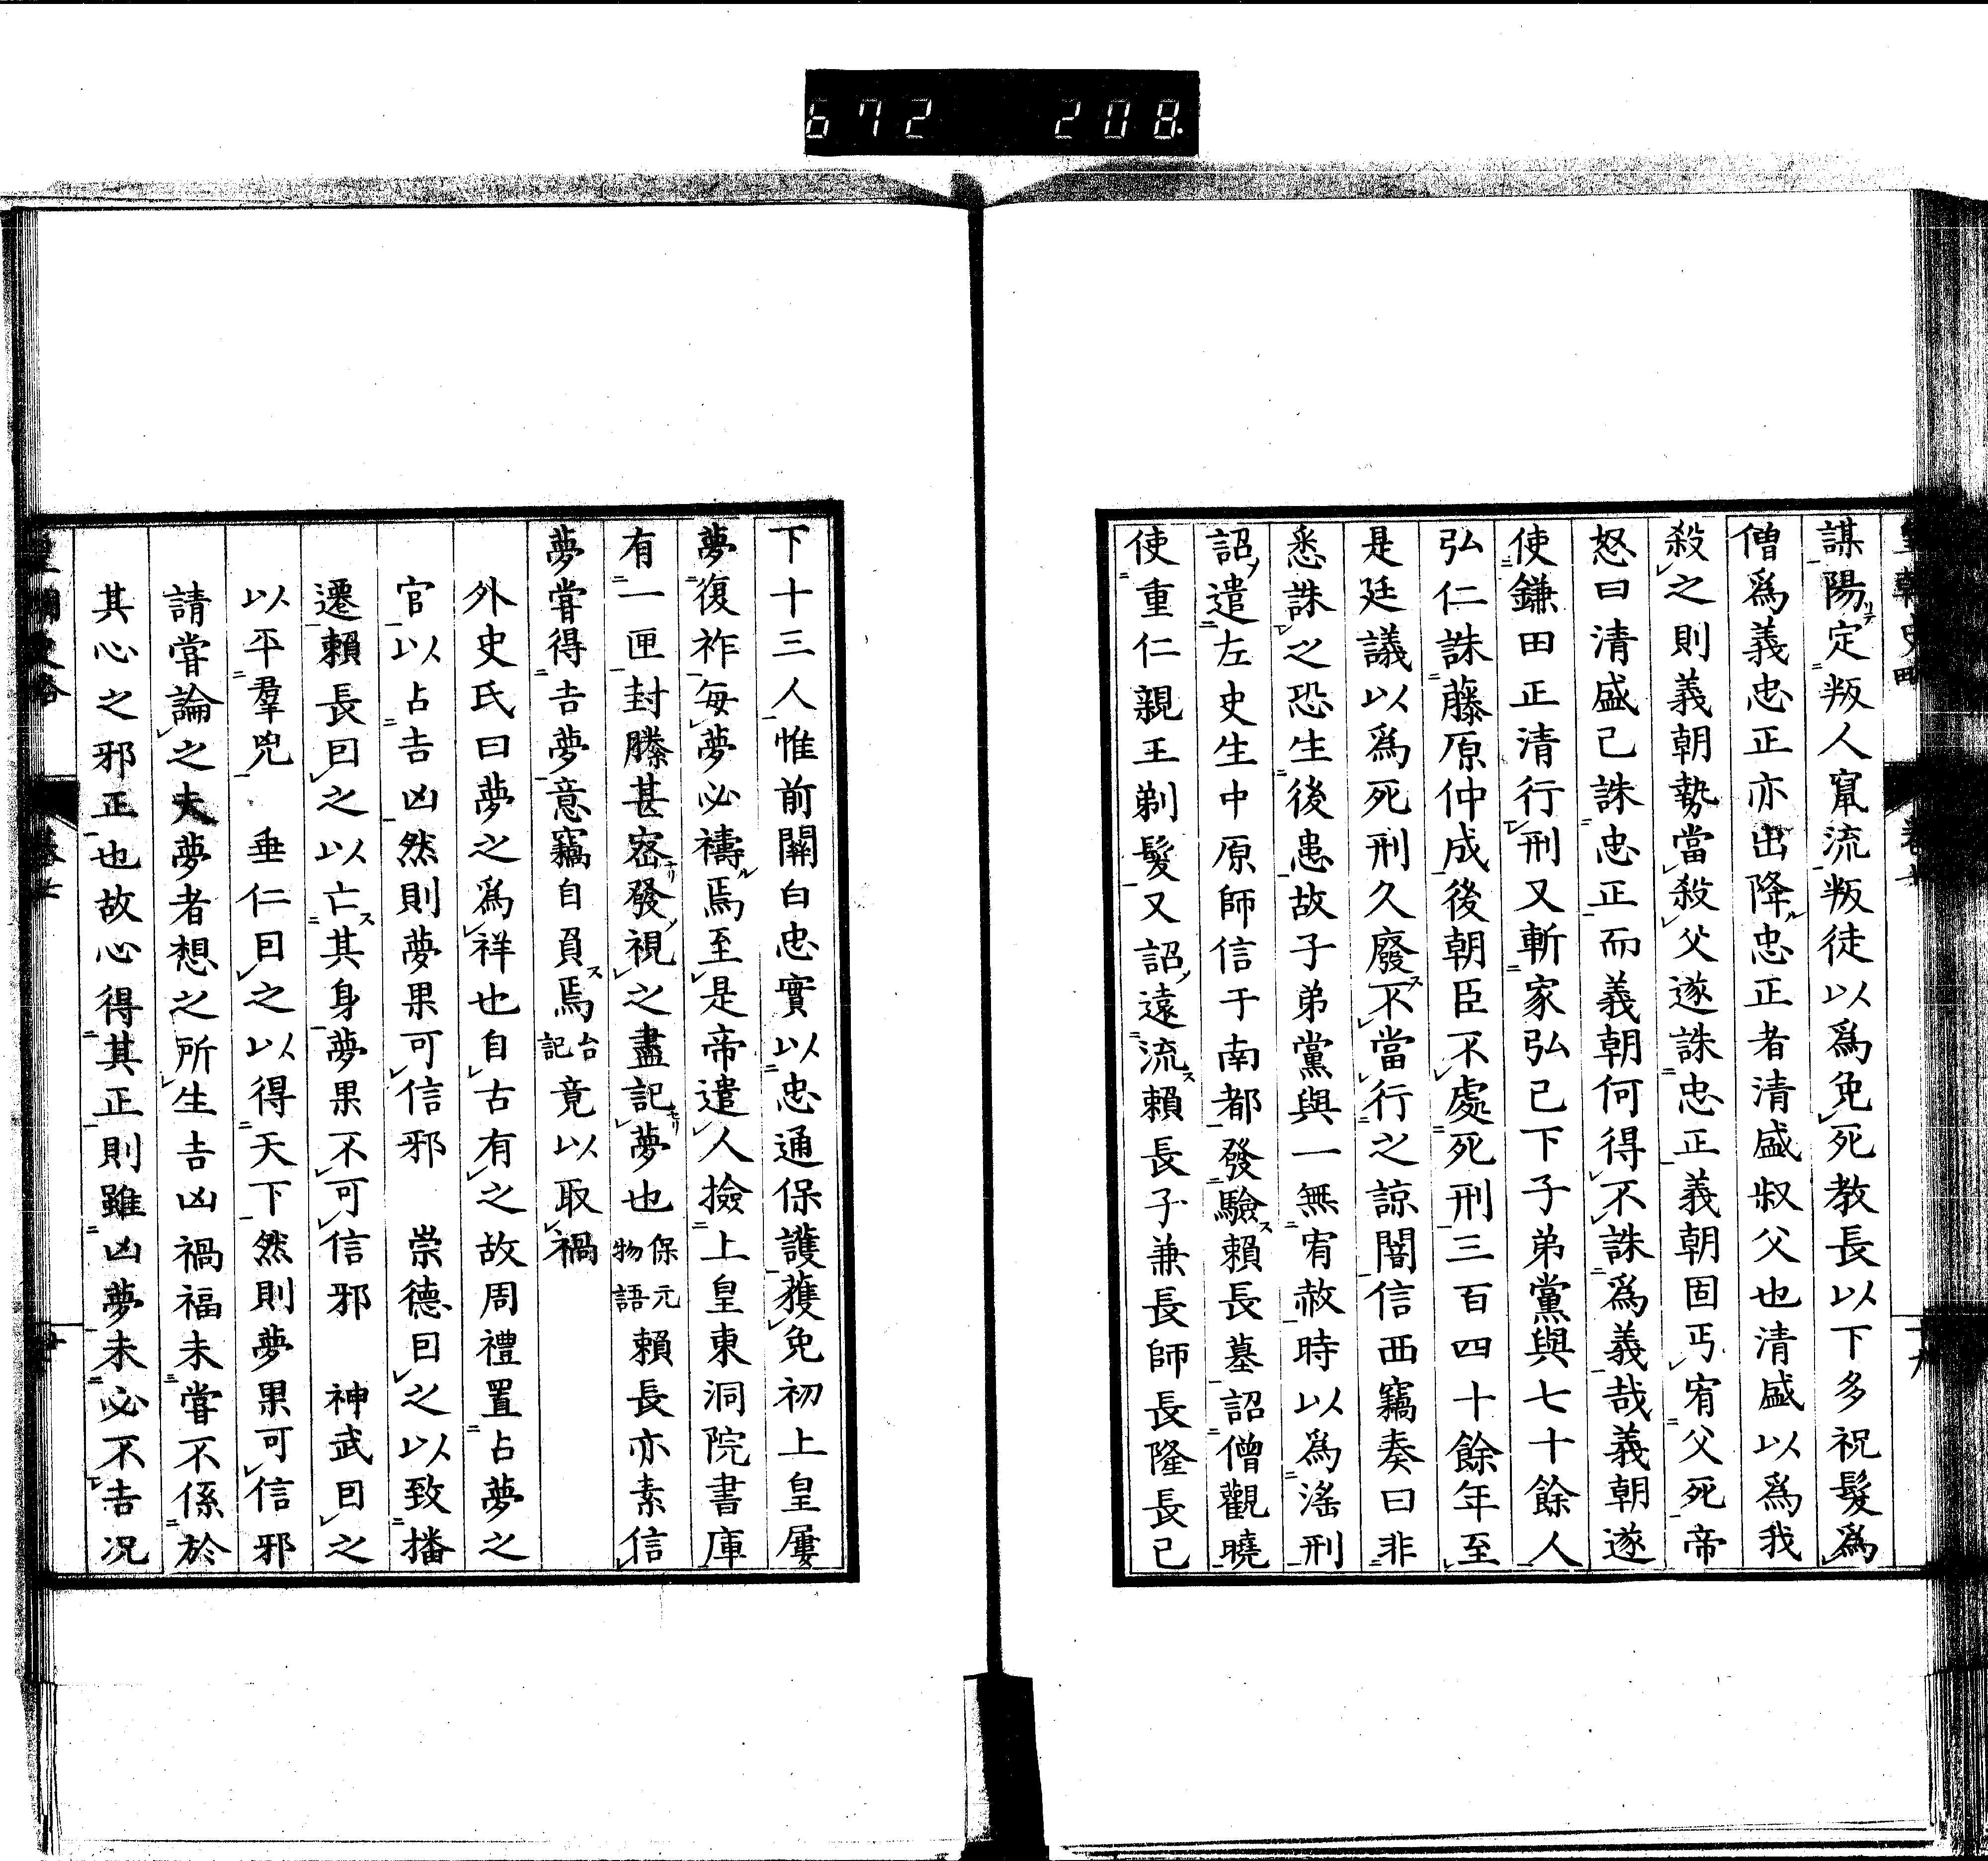 672 208.
謀陽定叛人竄流叛徒以爲免死教長以下多祝髮爲
僧爲義忠正亦出降忠正者清盛叔父也清盛以爲我
殺之則義朝勢當殺父遂誅忠正義朝固丐宥父死帝
怒曰清盛已誅忠正而義朝何得不誅爲義哉義朝遂
使鎌田正清行刑又斬家弘已下子弟黨與七十餘人
弘仁誅藤原仲成後朝臣不處死刑三百四十餘年至
是廷議以爲死刑久廢不當行之諒闇信西竊奏曰非
悉誅之恐生後患故子弟黨與一無宥赦時以爲滛刑
詔遣左史生中原師信于南都發驗賴長墓詔僧觀曉
使重仁親王剃髮又詔遠流賴長子兼長師長隆長已
下十三人惟前關白忠實以忠通保護獲免初上皇屢
夢復祚每夢必禱焉至是帝遣人撿上皇東洞院書庫
有一匣封縢甚密發視之盡記夢也保元物語賴長亦素信
夢嘗得吉夢意竊自負焉台記竟以取禍
外史氏曰夢之爲祥也自古有之故周禮置占夢之
官以占吉凶然則夢果可信邪 崇德因之以致播
遷賴長因之以亡其身夢果不可信邪 神武因之
以平羣兇 垂仁因之以得天下然則夢果可信邪
請嘗論之夫夢者想之所生吉凶禍福未嘗不係於
其心之邪正也故心得其正則雖凶夢未必不吉况